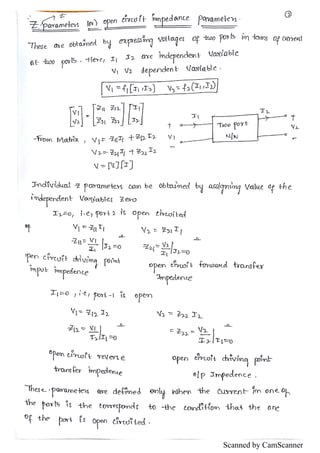 ③
Z-parameters (or) open circuit impedance parameters.
These are obtained by expressing voltages of two ports in terms of current
at two ports. Here, I1 I2 are independent Variable
V1 V2 dependent Variable.
V1 = f1[I1, I2] V2 = f2(I1, I2)
[V1 V2] = [Z11 Z12 Z21 Z22] [I1 I2]
I1 Two port N/W I2
V1 V2
From Matrix, V1 = Z11 I1 + Z12 I2
V2 = Z21 I1 + Z22 I2
V = [Z][I]
Individual z parameters can be obtained by assigning value of the
independent Variables zero
I2=0, i.e, port 2 is open circuited
V1 = Z11 I1 V2 = Z21 I1
Z11 = V1/I1 | I2=0 Z21 = V2/I1 | I2=0
open circuit driving point open circuit forward transfer
input impedence Impedence
I1=0, i.e, port-1 is open
V1 = Z12 I2 V2 = Z22 I2
Z12 = V1/I2 | I1=0 = Z22 = V2/I2 | I1=0
open circuit reverse open circuit driving point
transfer impedence o/p Impedence.
These parameters are defined only when the current in one of
the ports is the corresponds to the condition that the one
of the port is open circuited.
Scanned by CamScanner